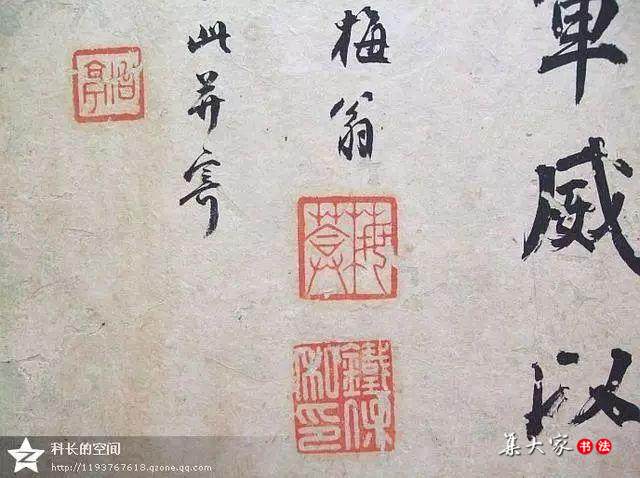 軍威以
梅翁
鐵保私印
此并寄
冶亭
科长的空间
http://1193767618.qzone.qq.com
集大家 书法